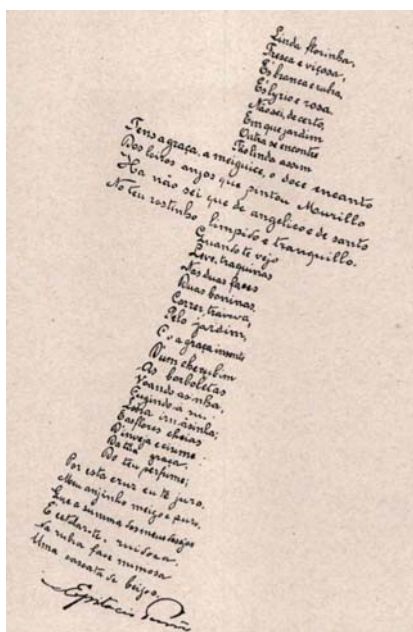 Linda florinha,
Fresca e viçosa,
És branca e rubra,
És lyrio e rosa.
Não sei, de certo,
Em que jardim
Outra se encontre
Tão linda assim
Tens a graça, a meiguice, o doce encanto
Dos loiros anjos que pintou Murillo
Ha não sei que de angelico e de santo
No teu rostinho limpido e tranquillo.
Quando te vejo
Leve, traquinas
Nas duas faces
Duas boninas,
Correr, travêssa,
Pelo jardim,
Co a graça
D'um cherubim
As borboletas
Voando asinha,
Fugindo á
Linda irmãsinha;
E as flores cheias
D'inveja e ciume
Da tua graça
Do teu perfume;
Por esta cruz eu te juro,
Meu anjinho meigo e puro,
Que a summa dos meus desejos
É estalar-te, ruidosa
Na rubra face mimosa
Uma cascata de beijos
Epitacio Pessôa